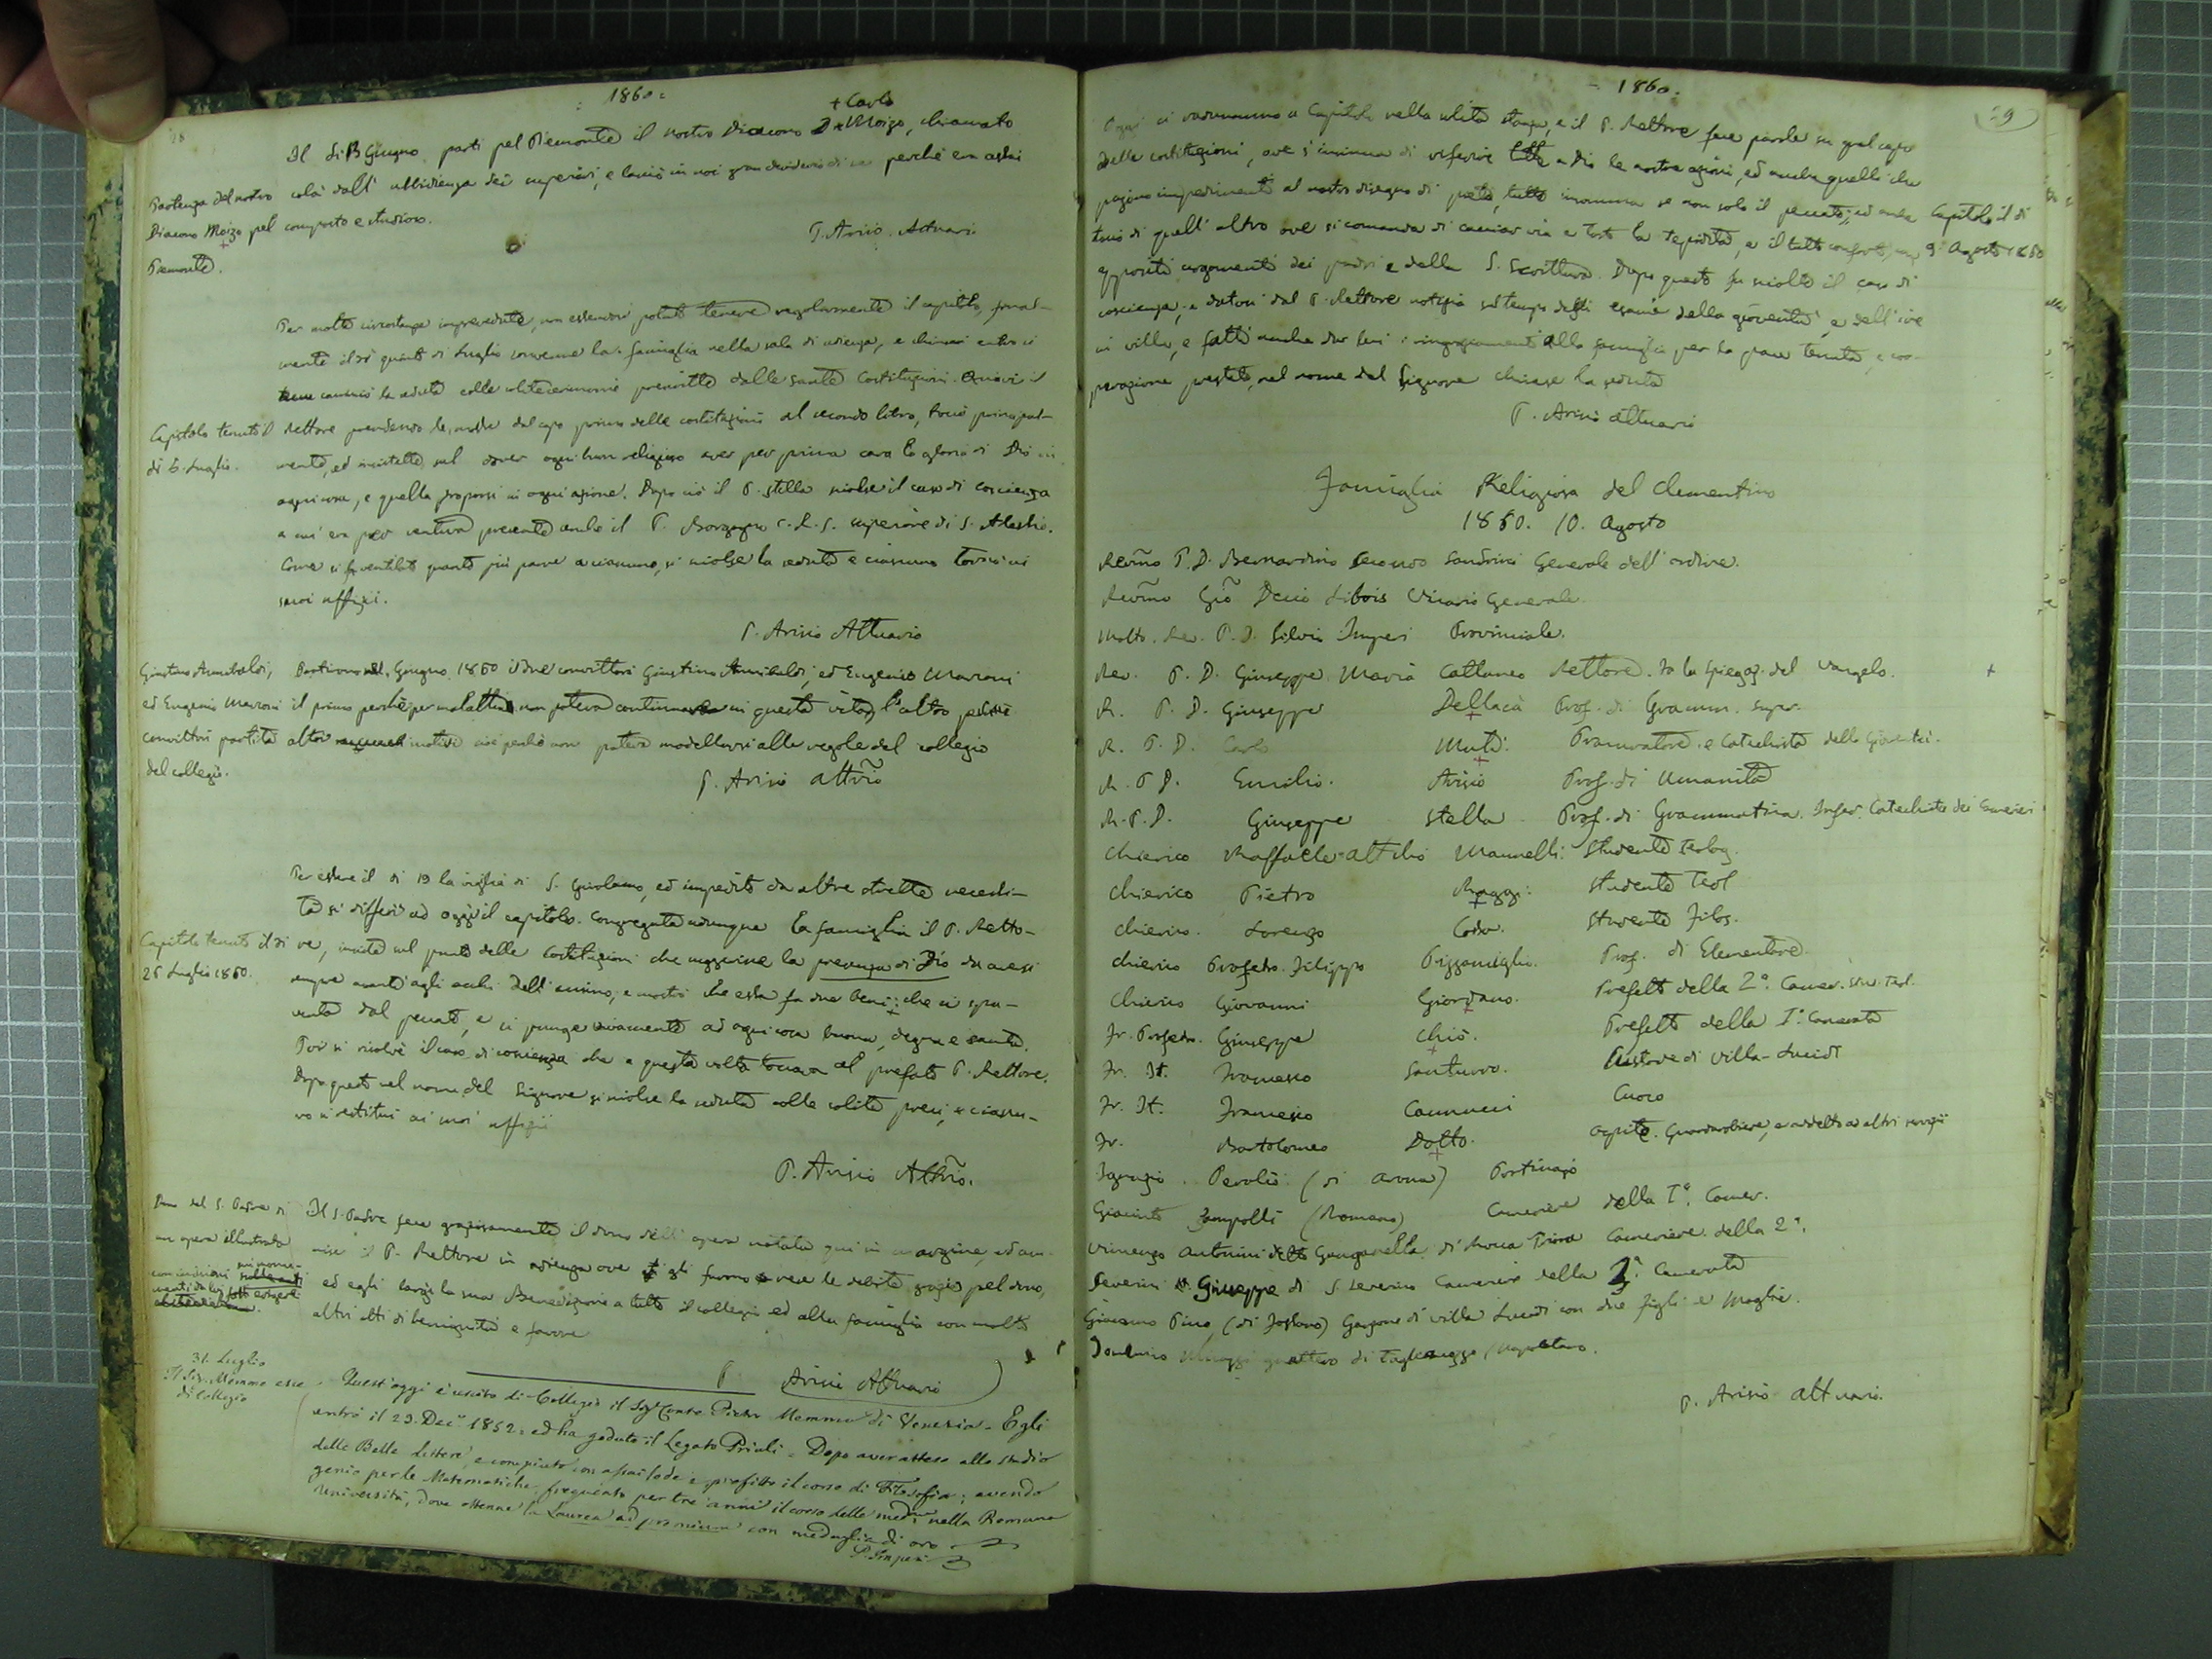 1860.
28
+ Carlo
Il dì 13 Giugno partì pel Piemonte il nostro Diacono D. Moizo, chiamato
Partenza del nostro
colà dall' ubbidienza dei superiori, e lasciò in noi gran desiderio di se perchè era assai
Diacono Moizo pel
composto e studioso.
Piemonte.
P. Arisio Attuario
Per molte circostanze imprevedute, non essendosi potuto tenere regolarmente il capitolo, final-
mente il dì quinto di Luglio convenne la famiglia nella sala di udienza, e chiusi entro si
cominciò la seduta colle solite cerimonie prescritte dalle sante Costituzioni. Quivi il
Capitolo tenuto il
dì 5. Luglio.
Rettore prendendo le mosse dal capo primo delle costituzioni al secondo libro, toccò principal-
mente, ed insistette sul dover ogni buon religioso aver per prima cosa la gloria di Dio in
ogni cosa, e quella proporsi in ogni azione. Dopo ciò il P. Stella sciolse il caso di coscienza
a cui era per ventura presente anche il P. Borgogno C.R.S. superiore di S. Alessio.
Come si fu ventilato quanto più parve a ciascuno, si sciolse la seduta e ciascuno tornò ai
suoi uffizi.
P. Arisio Attuario
Giustino Annibaldi,
ed Eugenio Marconi
convittori partiti
del collegio.
Partirono nel Giugno 1860 i due convittori Giustino Annibaldi, ed Eugenio Marconi
il primo perchè per malattia non poteva continuare in questa vita, l'altro per
altri motivi cioè perchè non poteva modellarsi alle regole del collegio
P. Arisio Attrio
Per essere il dì 19 la vigilia di S. Girolamo, ed impedito da altre strette necessi-
tà si differì ad oggi il capitolo. Congregata adunque la famiglia il P. Retto-
Capitolo tenuto il dì
26 Luglio 1860.
re, insistè sul punto delle Costituzioni che suggerisce la presenza di Dio da aversi
sempre avanti agli occhi dell' animo, e mostrò che essa fa due beni: che ci spa-
venta dal peccato, e ci punge vivamente ad ogni cosa buona, degna e santa.
Poi si risolvè il caso di coscienza che a questa volta toccava al prefato P. Rettore.
Dopo questo nel nome del Signore si sciolse la seduta colle solite preci, e ciascu-
no si restituì ai suoi uffizii
P. Arisio Attrio.
Dono del S. Padre di
un opera illustrata
con incisioni
Il S. Padre fece graziosamente il dono dell' opera notata qui in margine, ed am-
mise il P. Rettore in udienza ove gli furono rese le debite grazie pel dono,
ed egli largì la sua Benedizione a tutto il collegio ed alla famiglia con molti
altri atti di benignità e favore
P. Arisio Attuario
31. Luglio
Il Sig. Memmo esce
di Collegio
Quest'oggi è uscito di Collegio il Sigr Conte Pietro Memmo di Venezia. Egli
entrò il 23. Dece 1852, ed ha goduto il Legato Priuli. Dopo aver atteso allo studio
delle Belle Lettere, e compiuto con assai lode e profitto il corso di Filosofia; avendo
genio per le Matematiche, frequentò per tre anni il corso delle med nella Romana
Università, dove ottenne la Laurea ad premium con medaglia di oro
P. Imperi
1860.
29
Oggi ci radunammo a Capitolo nella solita stanza, e il P. Rettore fece parole su quel capo
delle costituzioni, ove s'insinua di riferire tutte a Dio le nostre azioni, ed anche quelle che
pajono impedimenti al nostro disegno di pietà, tutto insomma se non solo il peccato; ed anche
Capitolo il dì
9. Agosto 1860
toccò di quell' altro ove si comanda di cacciar via e tosto la tepidità, e il tutto confortò con
appositi argomenti dei padri e della S. Scrittura. Dopo questo fu sciolto il caso di
coscienza, e datosi dal P. Rettore notizia sul tempo degli esami della gioventù, e dell' ire
in villa, e fatti anche due ringraziamenti alla famiglia per la pace tenuta, e coo-
perazione prestata, nel nome del Signore chiuse la seduta
P. Arisio attuario
Famiglia Religiosa del Clementino
1860. 10. Agosto
Revmo P. D. Bernardino Secondo Sandrini Generale dell' ordine.
Revmo Gio Decio Libois Vicario Generale
Molto. Rev. P. D. Silvio Imperi Provinciale.
Rev. P. D. Giuseppe Maria Cattaneo Rettore. Fa la Spiegaz. del Vangelo. +
R. P. D. Giuseppe Dellacà Prof. di Gramm. Super.
R. P. D. Carlo Muti. Procuratore e Catechista della Gioventù.
R. P. D. Emilio. Arisio Prof. di Umanità
R. P. D. Giuseppe Stella Prof. di Grammatica Infer. Catechista dei Camerieri
Chierico Raffaele Attilio Mannelli. Studente Teolog.
Chierico Pietro Raggi. Studente Teol
Chierico. Lorenzo Coda. Studente Filos.
Chierico Professo. Filippo Pizzamiglio. Prof. di Elementare.
Chierico Giovanni Giordano. Prefetto della 2a. Camer. Stud. Teol.
Fr. Professo. Giuseppe Chiò. Prefetto della 1a. Camerata
Fr. It. Francesco Santurro. Custode di Villa-Lucidi
Fr. It. Francesco Cannucci Cuoco
Fr. Bartolomeo Dotto. Ospite. Guardarobiere, e addetto ad altri servigii
Ignazio Perolio (di Arona) Portinajo
Giacinto Zampolli (Romano) Cameriere della 1a. Camer.
Vincenzo Antonini detto Ganganella di Rocca Priora Cameriere della 2a.
Severini Giuseppe di S. Severino Cameriere della 3a. Camerata
Giacomo Pino (di Fossano) Garzone di Villa Lucidi con due figli e Moglie.
Domenico guattero di Tagliacozzo Napoletano.
P. Arisio attuario.